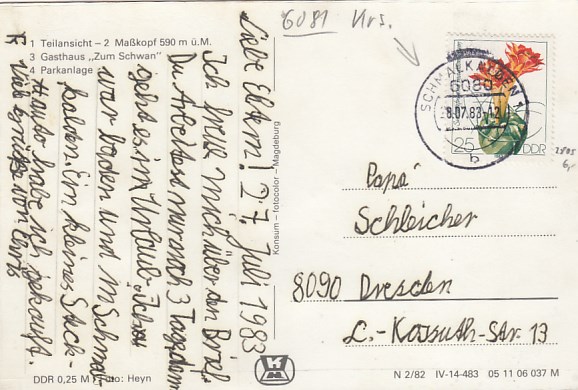 6081 Krs.
1 Teilansicht – 2 Maßkopf 590 m ü.M.
3 Gasthaus „Zum Schwan"
4 Parkanlage
Liebe Eltern! 27. Juli 1983
Ich freue mich über den Brief.
Du Arbeitest nur noch 3 Tage dann
geht es im Urlaub. Ich
war baden und in Schmal-
kalden. Ein kleines Stück-
Hauto habe ich gekauft.
Viele grüße von
DDR 0,25 M Foto: Heyn
Konsum – fotocolor – Magdeburg
SCHMALKALDEN 1
6080
8.07.83-12
b
25 DDR
Papa
Schleicher
8090 Dresden
L.-Kossuth-Str. 13
N 2/82 IV-14-483 05 11 06 037 M